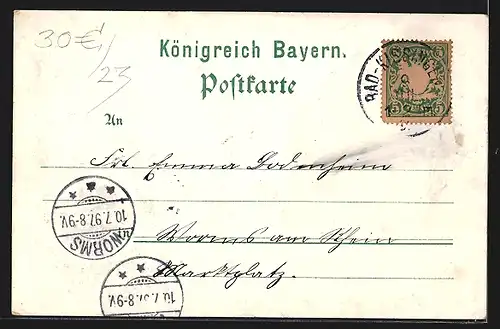 30€/23
Königreich Bayern.
Postkarte
An
Frl. Emma Godenheim
in
Worms am Rhein
Marktplatz.
BAD-KISSINGEN
5 5
10.7.97.8-9V.
WORMS
10.7.97.8-9V.